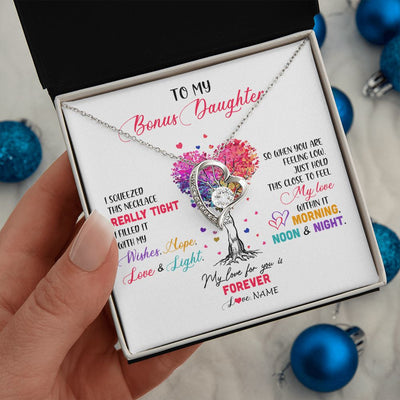 TO MY
Bonus Daughter
I SQUEEZED
THIS NECKLACE
REALLY TIGHT
I FILLED IT
WITH MY
Wishes, Hope,
Love & Light.
SO WHEN YOU ARE
FEELING LOW,
JUST HOLD
THIS CLOSE TO FEEL
My love
WITHIN IT
MORNING,
NOON & NIGHT.
My love for you is
FOREVER
Love, NAME